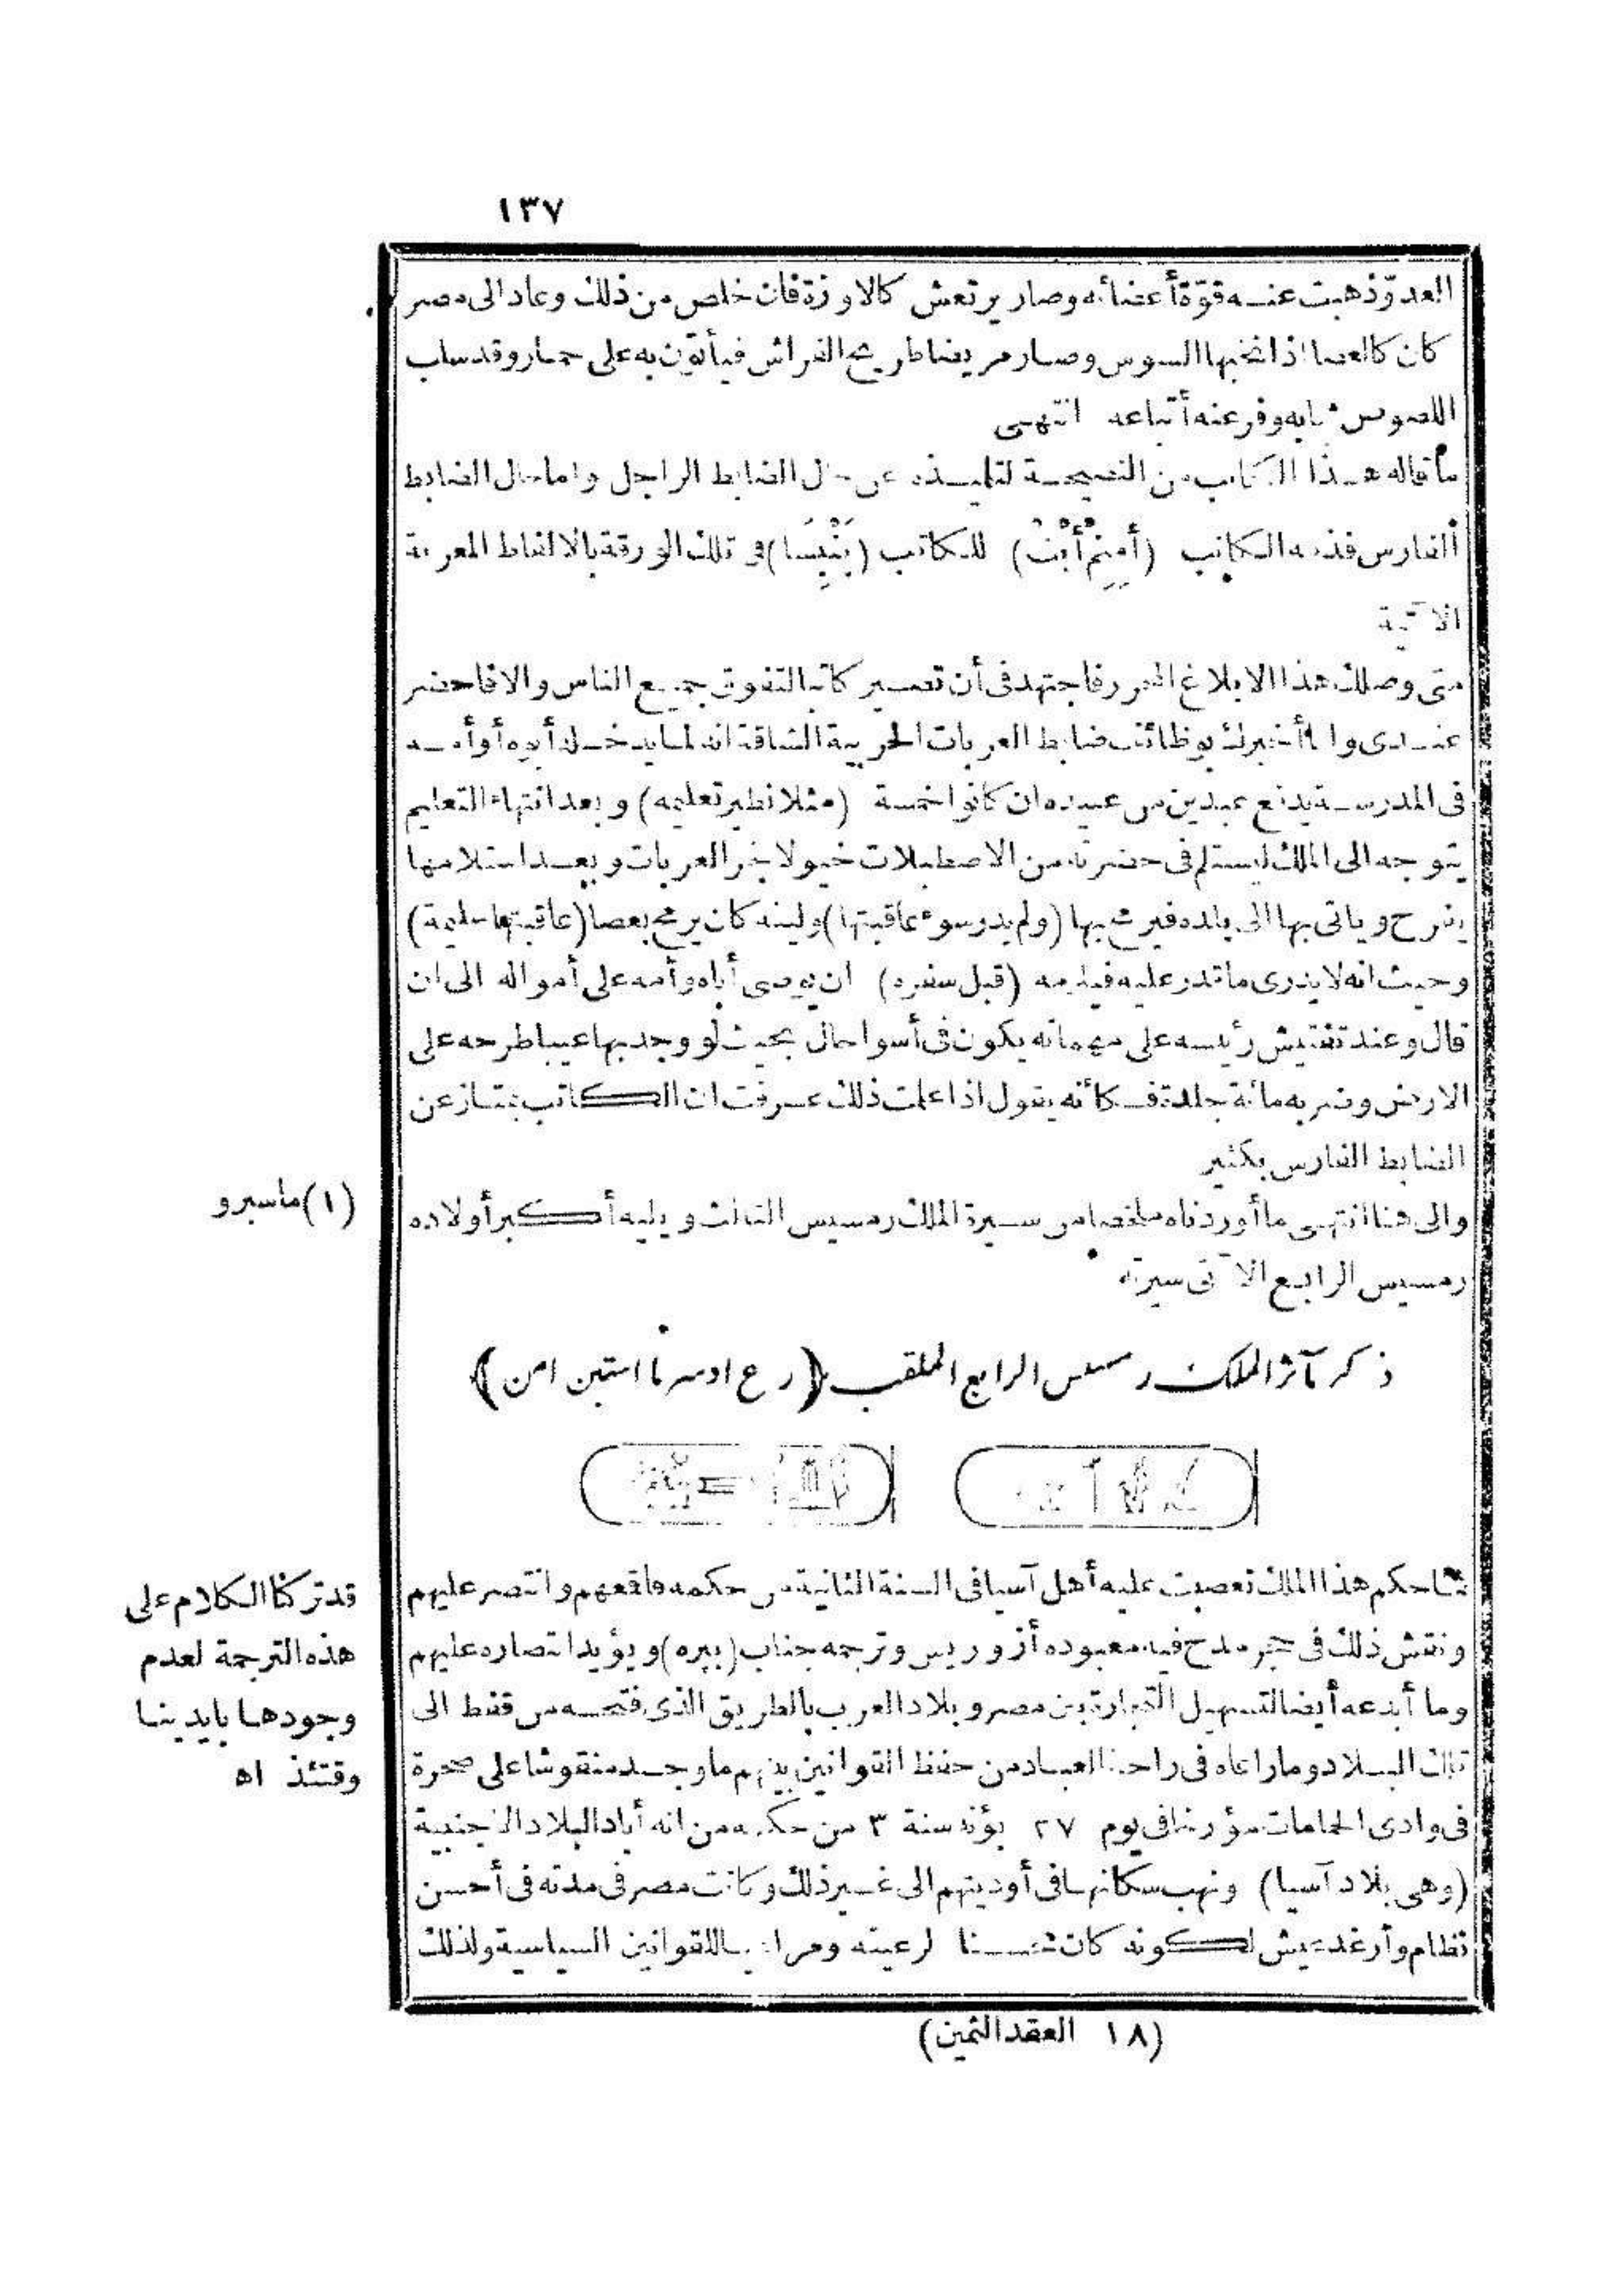 ١٣٧
العدوّ ذهبت عنه قوّة أعضائه وصار يرتعش كالاوزة فان خلص من ذلك وعاد الى مصر
كان كالعصا اذا نخبها السوس وصار مريضا طريح الفراش فيأتون به على حمار وقد سلب
اللصوص ثيابه وفر عنه أتباعه انتهى
ما قاله هذا الكاتب من النصيحة لتلميذه عن حال الضابط الراجل واما حال الضابط
الفارس فذمه الكاتب (أمنم أبت) للكاتب (بنبسا) فى تلك الورقة بالالفاظ المعربة
الآتية
متى وصلك هذا الابلاغ المحرر فاجتهد فى أن تصير كاتبا لتفوق جميع الناس والا فاحضر
عندى وأنا أخبرك بوظائف ضابط العربات الحربية الشاقة انه لما يدخله أبوه أو أمه
فى المدرسة يدفع عبدين من عبيده ان كانوا خمسة (مثلا نظير تعليمه) وبعد انتهاء التعليم
يتوجه الى الملك ليستلم فى حضرته من الاصطبلات خيولا لجر العربات وبعد استلامها
يفرح وياتى بها الى بلده فيرمح بها (ولم يدر سوء عاقبتها) وليته كان يرمح بعصا (عاقبتها سليمة)
وحيث انه لا يدرى ما قدر عليه فيلزمه (قبل سفره) ان يوصى أباه وأمه على أمواله الى ان
قال وعند تفتيش رئيسه على مهماته يكون فى أسوا حال بحيث لو وجد بها عيبا طرحه على
الارض وضربه مائة جلدة فكأنه يقول اذا علمت ذلك عرفت ان الكاتب يمتاز عن
الضابط الفارس بكثير
والى هنا انتهى ما أوردناه ملخصا من سيرة الملك رمسيس الثالث ويليه أكبر أولاده
(١) ماسبرو
رمسيس الرابع الآتى سيرته
ذكر مآثر الملك رمسيس الرابع الملقب (رع اوسرما استبن امن)
لما حكم هذا الملك تعصبت عليه أهل آسيا فى السنة الثانية من حكمه فاقمعهم وانتصر عليهم
ونقش ذلك فى حجر مدح فيه معبوده أزوريس وترجمه جناب (بيره) ويؤيد انتصاره عليهم
وما أبدعه أيضا لتسهيل التجارة بين مصر وبلاد العرب بالطريق الذى فتحه من قفط الى
تلك البلاد وما راعاه فى راحة العباد من حفظ القوانين بينهم ما وجد منقوشا على صخرة
فى وادى الحمامات مؤرخا فى يوم ٢٧ بؤنه سنة ٣ من حكمه من انه أباد البلاد الاجنبية
(وهى بلاد آسيا) ونهب سكانها فى أوديتهم الى غير ذلك وكانت مصر فى مدته فى أحسن
نظام وأرغد عيش لكونه كان محسنا لرعيته ومراعيا للقوانين السياسية ولذلك
قد تركنا الكلام على
هذه الترجمة لعدم
وجودها بايدينا
وقتئذ اه
(١٨ العقد الثمين)